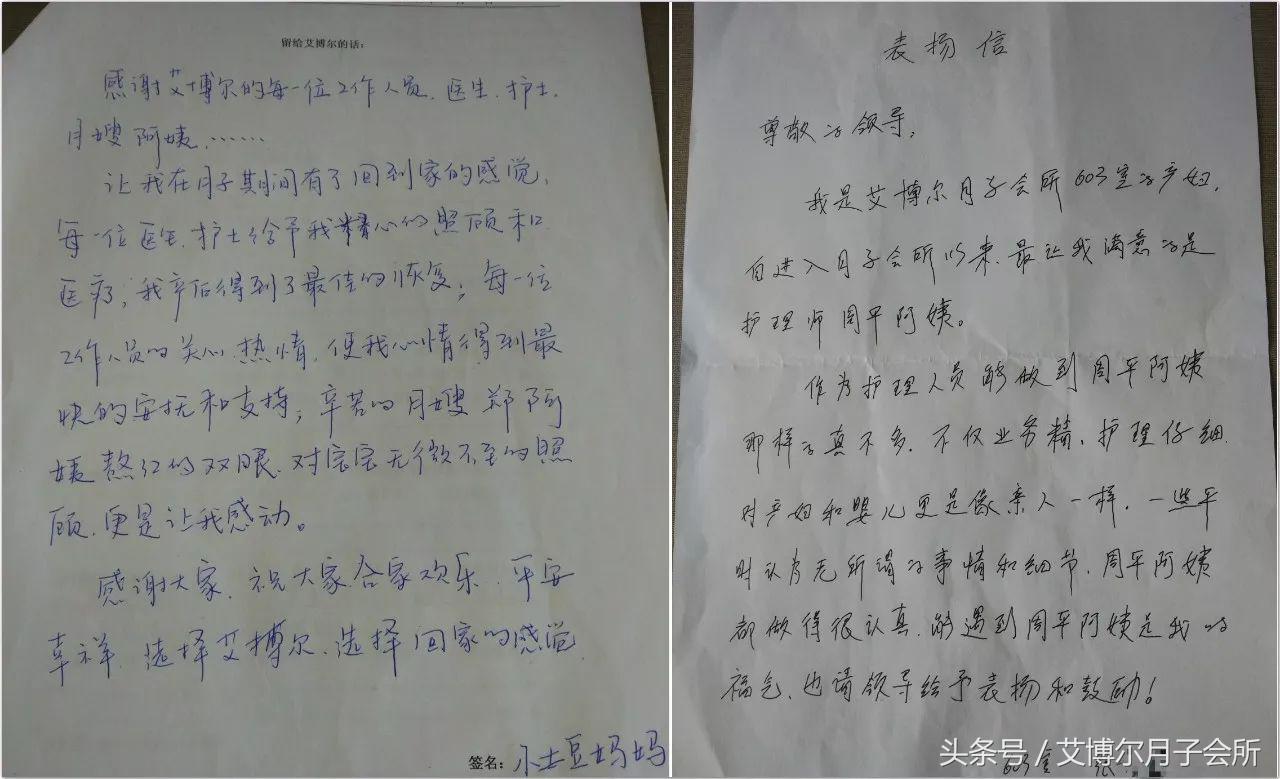 留给艾博尔的话:
感谢艾博尔的每一位工作人员、医生、护士、
月嫂阿姨、……
让我在月子期间有了回到家的感觉,
每一位医生、护士给予我精心的照顾和
医疗,我产后得到了最佳的恢复;每一位
工作人员的关心热情,使我心情得到最
快的安抚和支持;辛苦的月嫂郑阿
姨熬红的双眼、对宝宝无微不至的照
顾、更是让我感动。
感谢大家、祝大家合家欢乐 平安
幸祥、选择艾博尔、选择回家的感觉
签名:小土豆妈妈
表扬信
尊敬的领导,
我是艾博尔月子会所603室的产妇,
自进入月子会所以来、最让我满意的是
护理师周平阿姨。
作为护理人员能做到周平阿姨
那样的真不多、不仅业务精、护理仔细、
对产妇和婴儿更是像亲人一样,一些平
时认为无所谓的事情和细节,周平阿姨
都做得很认真、能遇到周平阿姨是我的
福气、也请领导给予表扬和鼓励!
603室 张
头条号/艾博尔月子会所